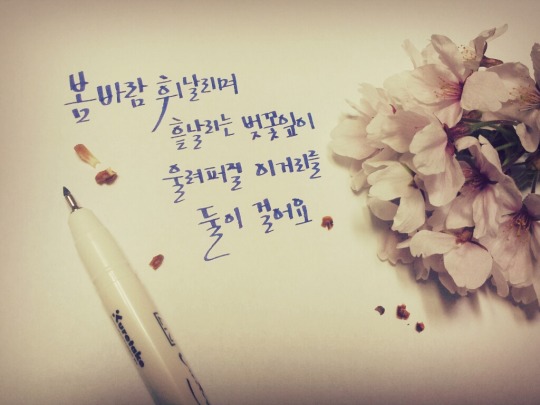 봄바람 휘날리며
흩날리는 벚꽃잎이
울려퍼질 이거리를
둘이 걸어요
Kuretake